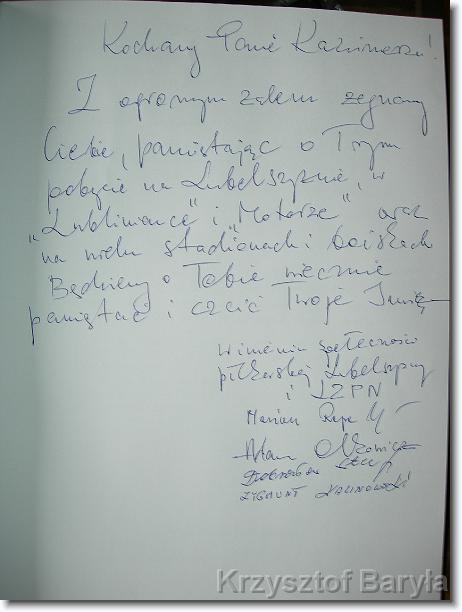 Kochany Panie Kazimierzu!
Z ogromnym żalem żegnamy
Ciebie, pamiętając o Twym
pobycie na Lubelszczyźnie, w
„Lubliniance" i „Motorze" oraz
na wielu stadionach i boiskach
Będziemy o Tobie wiecznie
pamiętać i czcić Twoje Imię
W imieniu społeczności
piłkarskiej Lubelszczyzny
i LZPN
Marian
Adam
ZYGMUNT KALINOWSKI
Krzysztof Baryła